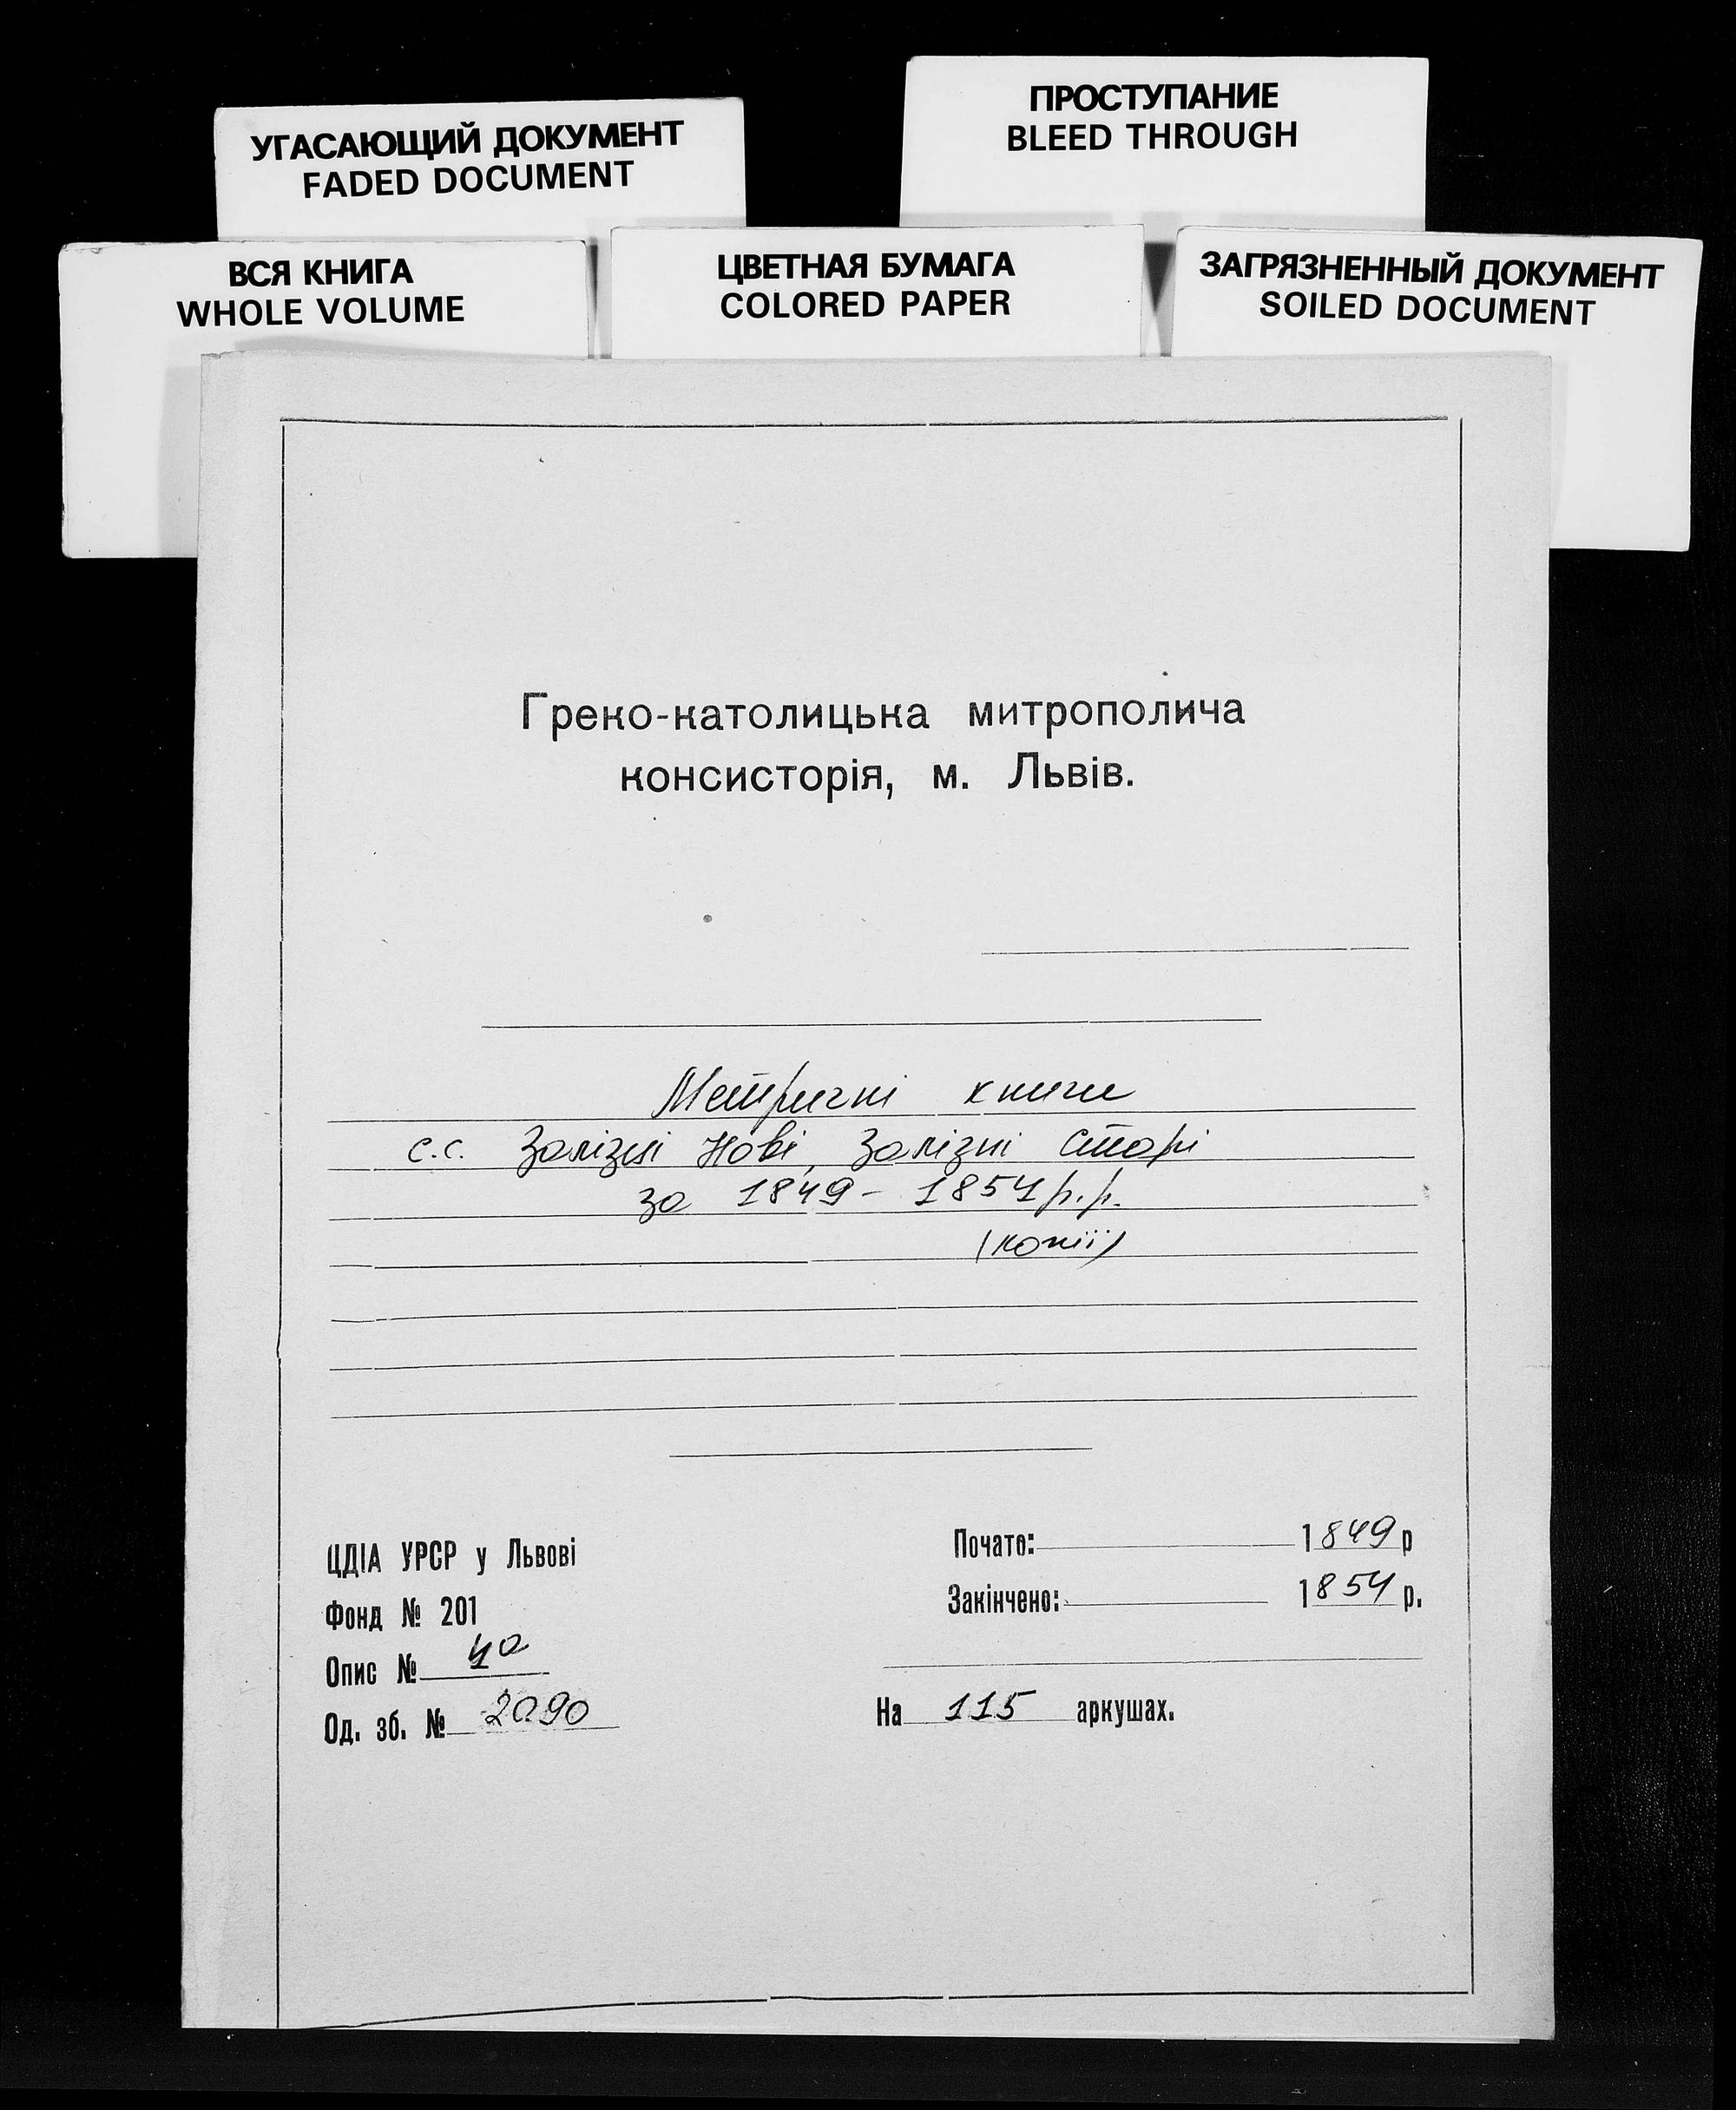 УГАСАЮЩИЙ ДОКУМЕНТ
FADED DOCUMENT
ПРОСТУПАНИЕ
BLEED THROUGH
ВСЯ КНИГА
WHOLE VOLUME
ЦВЕТНАЯ БУМАГА
COLORED PAPER
ЗАГРЯЗНЕННЫЙ ДОКУМЕНТ
SOILED DOCUMENT
Греко-католицька митрополича
консисторія, м. Львів.
Метричні книги
с.с. Залізці Нові, Залізці Старі
за 1849 - 1854 р.р.
(копії)
ЦДІА УРСР у Львові
Фонд № 201
Опис № 4а
Од. зб. № 2090
Почато: 1849 р
Закінчено: 1854 р.
На 115 аркушах.